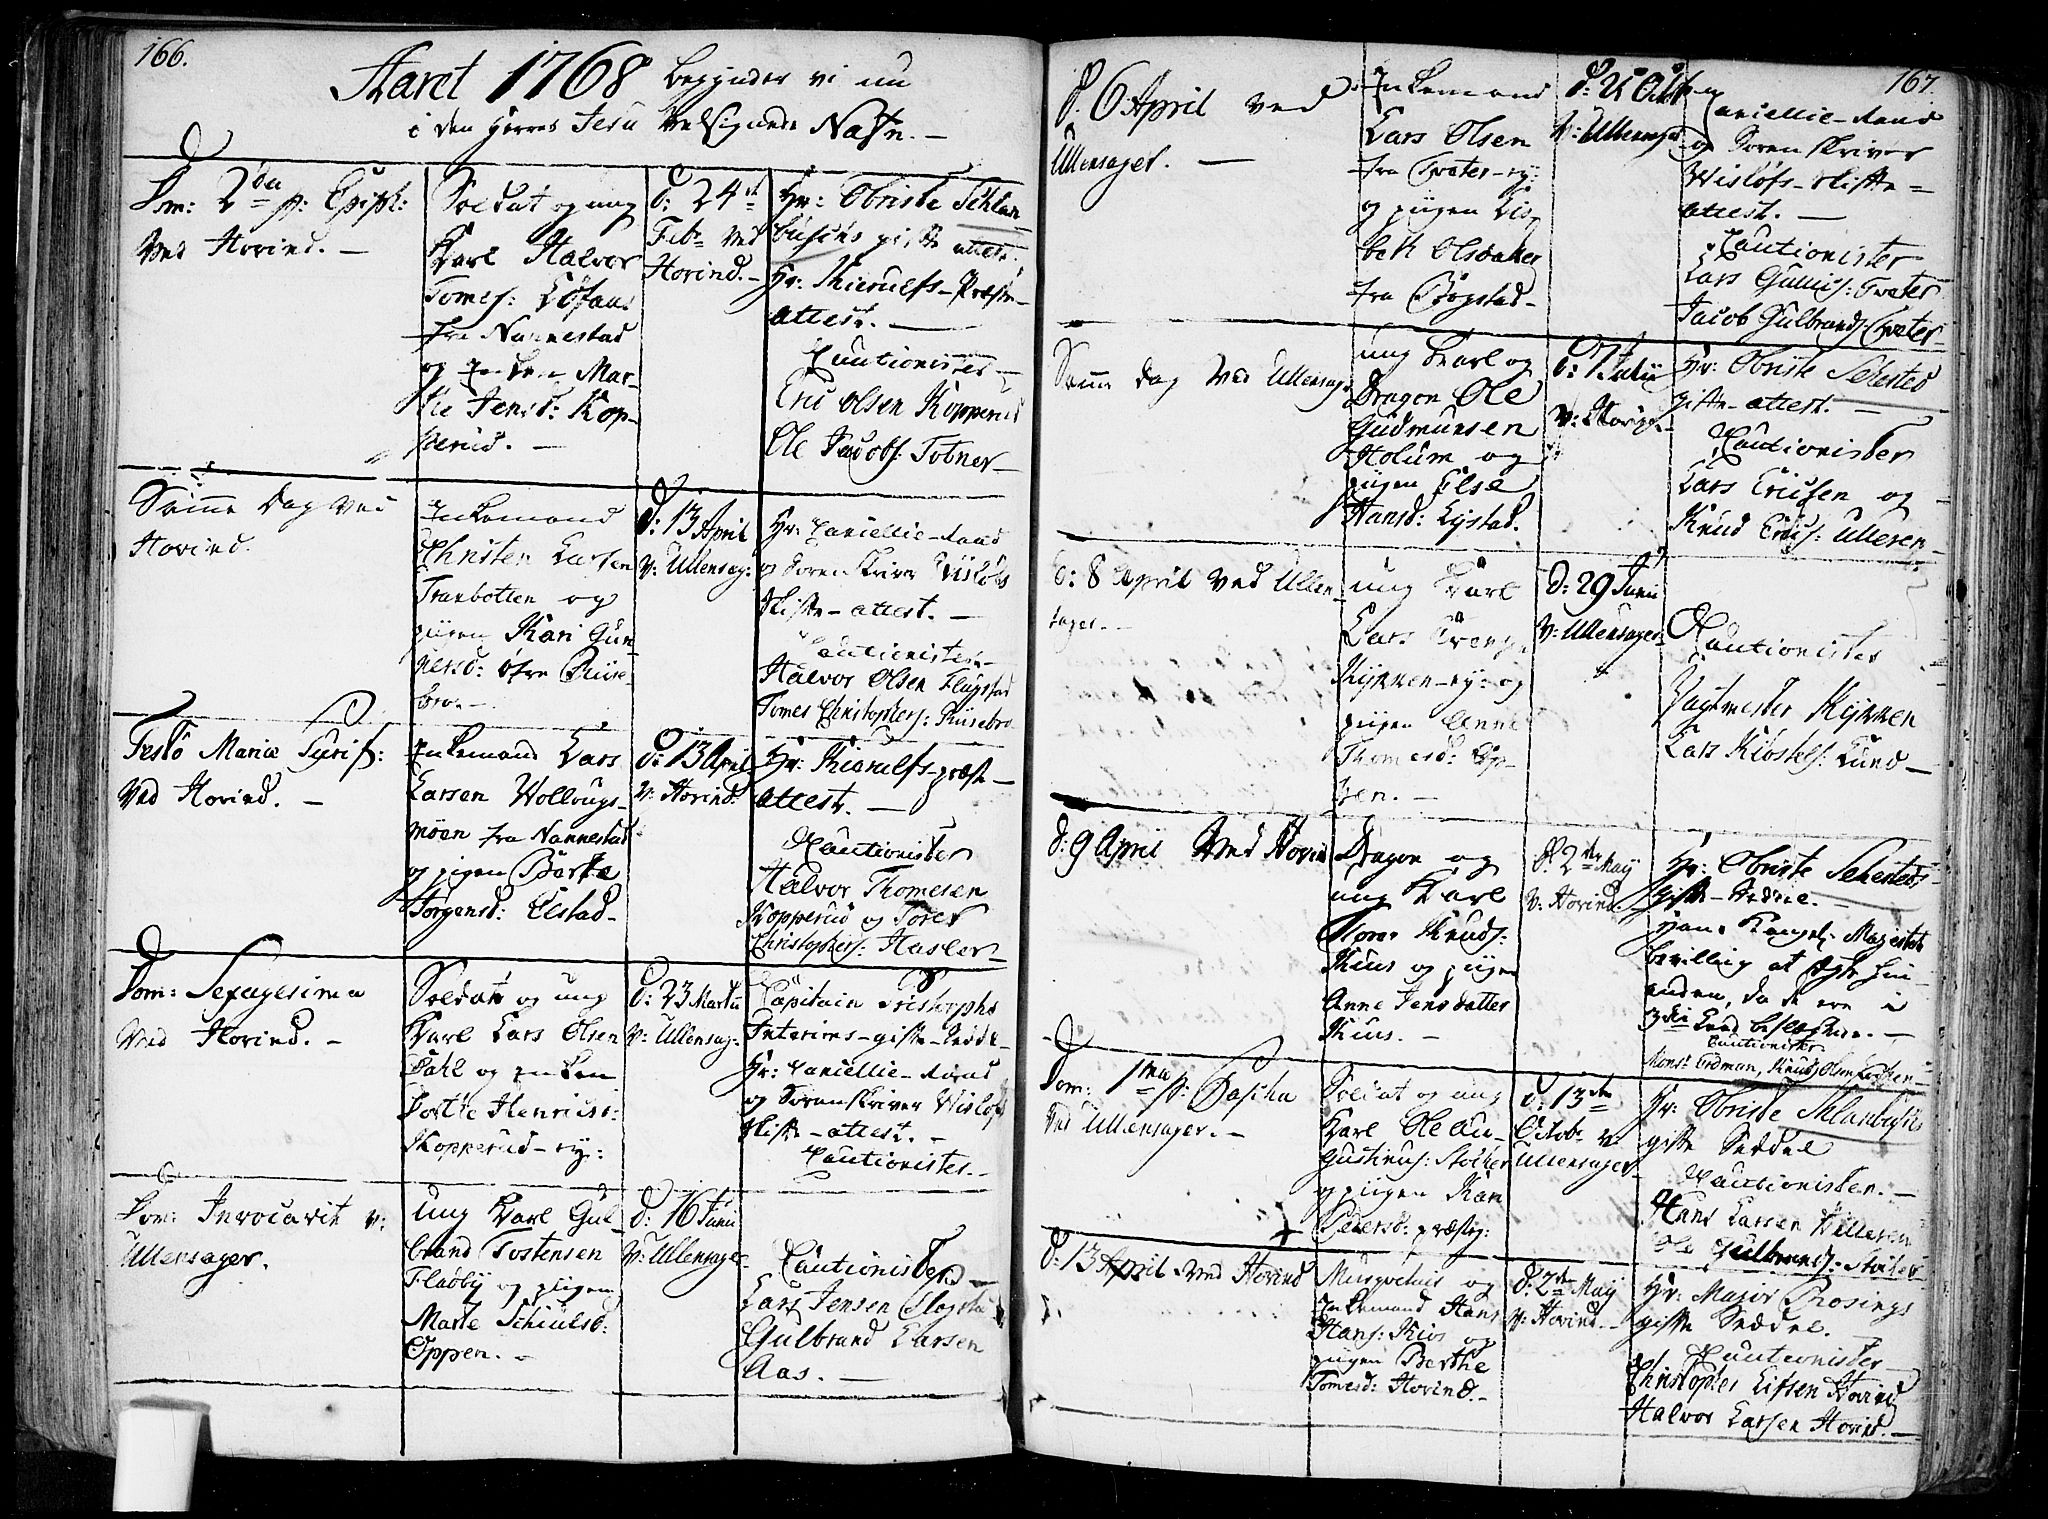 166.
Aaret 1768 begynder vi nu
i den Herres Jesu velsignede Nafn. —
Dom: 2da p: Epiph:
Ved Hovind. —
Soldat og ung
Karl Halvor
Tomes:
fra Nannestad
og Enken Mar-
the Jensd: Kop-
perud. —
d: 24de
Febr ved
Hovind. —
Hr: Obriste Schlan
buschs gifte attest.
Hr: Kierulfs Præste-
attest. —
Cautionister
Eric Olsen Kopperud
Ole Jacobs: Tobner —
Samme Dag ved
Hovind.
Enkemand
Christen Larsen
Tranbotten og
pigen Kari Gun-
nersd: öfre Riise-
bro. —
d: 13 April
V: Ullensag:
Hr: Cancellie-Raad
og Sorenskriver Wisløfs
skifte-attest. —
Cautionister
Halvor Olsen Flugstad
Tomes Christophers: Riisebro
Festo Mariæ Purif:
Ved Hovind. —
Enkemand Lars
Larsen Wollougs-
möen fra Nannestad
og pigen Berthe
Jorgensd: Elstad —
d: 13 April
V: Hovind:
Hr: Kierulfs-præste —
attest. —
Cautionister
Halvor Thomesen
Kopperud og Tores
Christophers: Hasler —
Dom: Sexagesima
Ved Hovind. —
Soldat og ung
Karl Lars Olsen
Dahl og enken
Dorthe Henricsd:
Kopperud-ey:
d: 23 Martii
V: Ullensag:
Capitain
Interims-gifte-Seddel
Hr: Cancellie-Raad
og Sorenskriver Wisløfs
skifte-attest. —
Cautionister. —
Dom: Invocavit v:
Ullensager.
Ung Karl Gul-
brand Tostensen
Flaöby og pigen
Marte Schiulsd:
Oppen. —
d: 16 Junii
V: Ullensager
Cautionister
Lars Jensen
Gulbrand Larsen
Aas. —
167.
d. 6 April ved
Ullensager. —
Enkemand
Lars Olsen
fra Tvæter-ey:
og pigen Lis-
beth Olsdatter
fra Bögstad —
V: Ullensager
Cancellie-Raad
og Sorenskriver
Wisløfs-skifte —
attest. —
Cautionister
Lars Gullics: Tvæter
Jacob Gulbrands: Tvæter —
Samme Dag ved Ullensag:
ung Karl og
Dragon Ole
Gudmunsen
Holum og
pigen Else
Hansd: Lystad.
d: 7 Julii
Hr: Obriste Sehested
gifte-attest. —
Cautionister
Lars Ericsen og
Knud Erics: Ulleren —
d: 8 April ved Ullen
sager. —
ung Karl
Lars
Kykken-ey: og
pigen Anne
Thomesd:
d: 29 Junii
V: Ullensager
Cautionister
Vagtmester Kykken
Lars
d: 9 April Ved Hovind
Dragon og
ung Karl
Knuds:
Kius og pigen
Anne Jensdatter
Kius. —
d: 2den May
V: Hovind.
Hr: Obriste Sehesteds
gifte-Seddel. —
Hans Kongel: Majestets
bevilling at ægte hin
anden, da de ere i
3die Leed beslægtede. —
Cautionister
Mons: Erdman, Knud Olsen
Dom: 1ma p: Pascha
Ved Ullensager. —
Soldat og ung
Karl Ole Au-
gustinus: Stocker
og pigen Kari
Pedersd: præsteg:
d: 13de
Octobr v:
Ullensager
Hr: Obriste Schlanbusch
gifte Seddel
Cautionister. —
Hans Larsen Ulleren
Ole Gulbrands: Stocker
d: 13 April ved Hovind
Musqueteer og
Enkemand Hans
Hans: Kios og
pigen Berthe
Tomesd: Hovind —
d: 2den May
V: Hovind. —
Hr: Major Rosings
gifte Seddel. —
Cautionister
Christopher Lifsen Hovind
Halvor Larsen Hovind. —